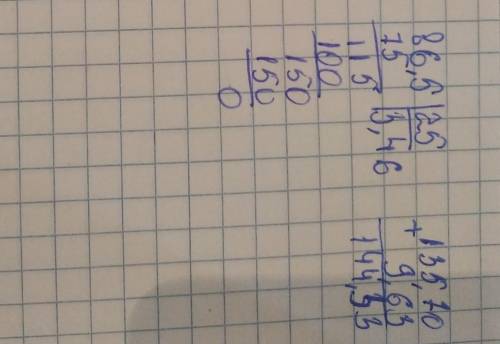 86,5 | 25
75 3,46
115
100
150
150
0
+ 13570
9,63
144,33